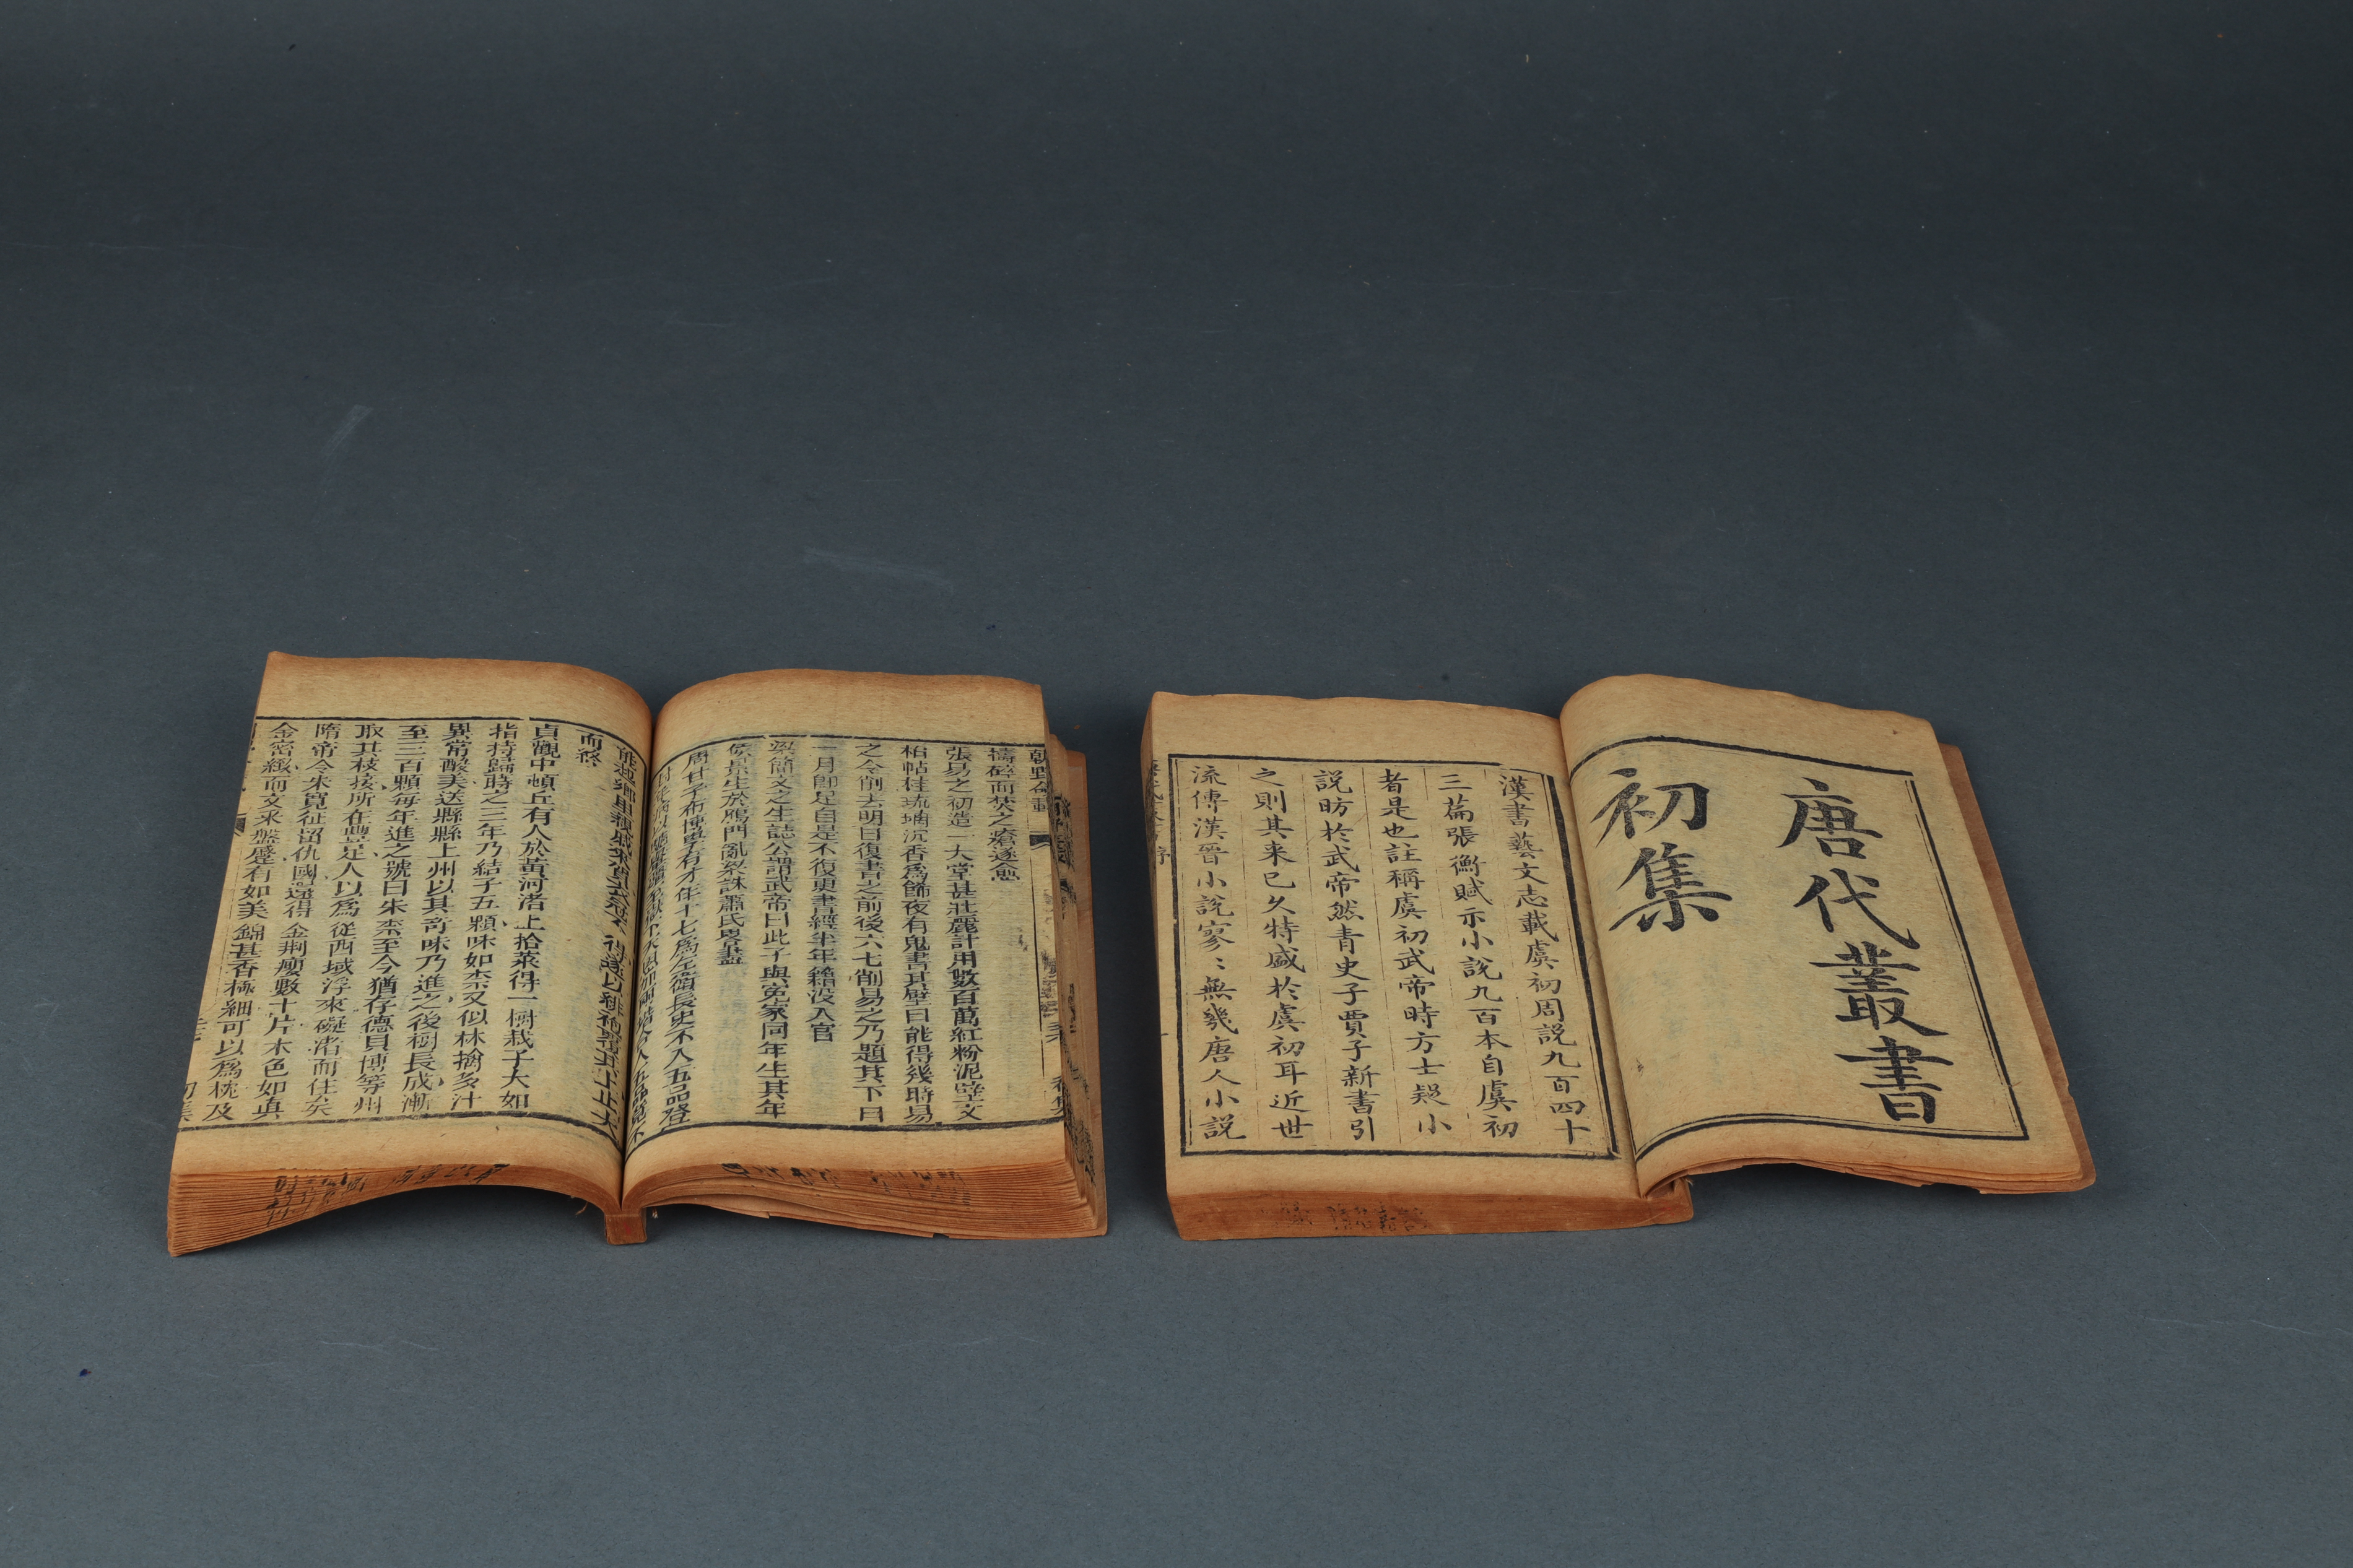 唐代叢書
初集
漢書藝文志載虞初周説九百四十
三萹張衡賦示小説九百本自虞初
者是也註稱虞初武帝時方士疑小
説昉於武帝然青史子賈子新書引
之則其来已久特盛於虞初耳近世
流傳漢晉小説寥〻無幾唐人小説
朝野僉載
禱碎而焚之瘡遂愈
張易之初造一大堂甚壯麗計用數百萬紅粉泥壁文
栢帖柱琉璃沉香爲飾夜有鬼書其壁曰能得幾時易
之令削去明日復書之前後六七削易之乃題其下曰
一月即足自是不復更書經半年籍没入官
梁簡文之生誌公謂武帝曰此子與寃家同年生其年
侯景生於鴈門亂梁誅蕭氏畧盡
周甘子布博學有才年十七爲左衛長史不入五品登
而終
貞觀中頓丘有人於黄河渚上拾菜得一樹栽子大如
指持歸蒔之三年乃結子五顆味如柰又似林擒多汁
異常酸美送縣縣上州以其奇味乃進之後樹長成漸
至三百顆每年進之號曰朱柰至今猶存德貝博等州
取其枝接所在豐足人以爲從西域浮來礙渚而住矣
隋帝令朱寛征留仇國還得金荆瘤數十片木色如真
金密緻而文釆盤蹙有如美錦甚香極細可以爲枕及
初集